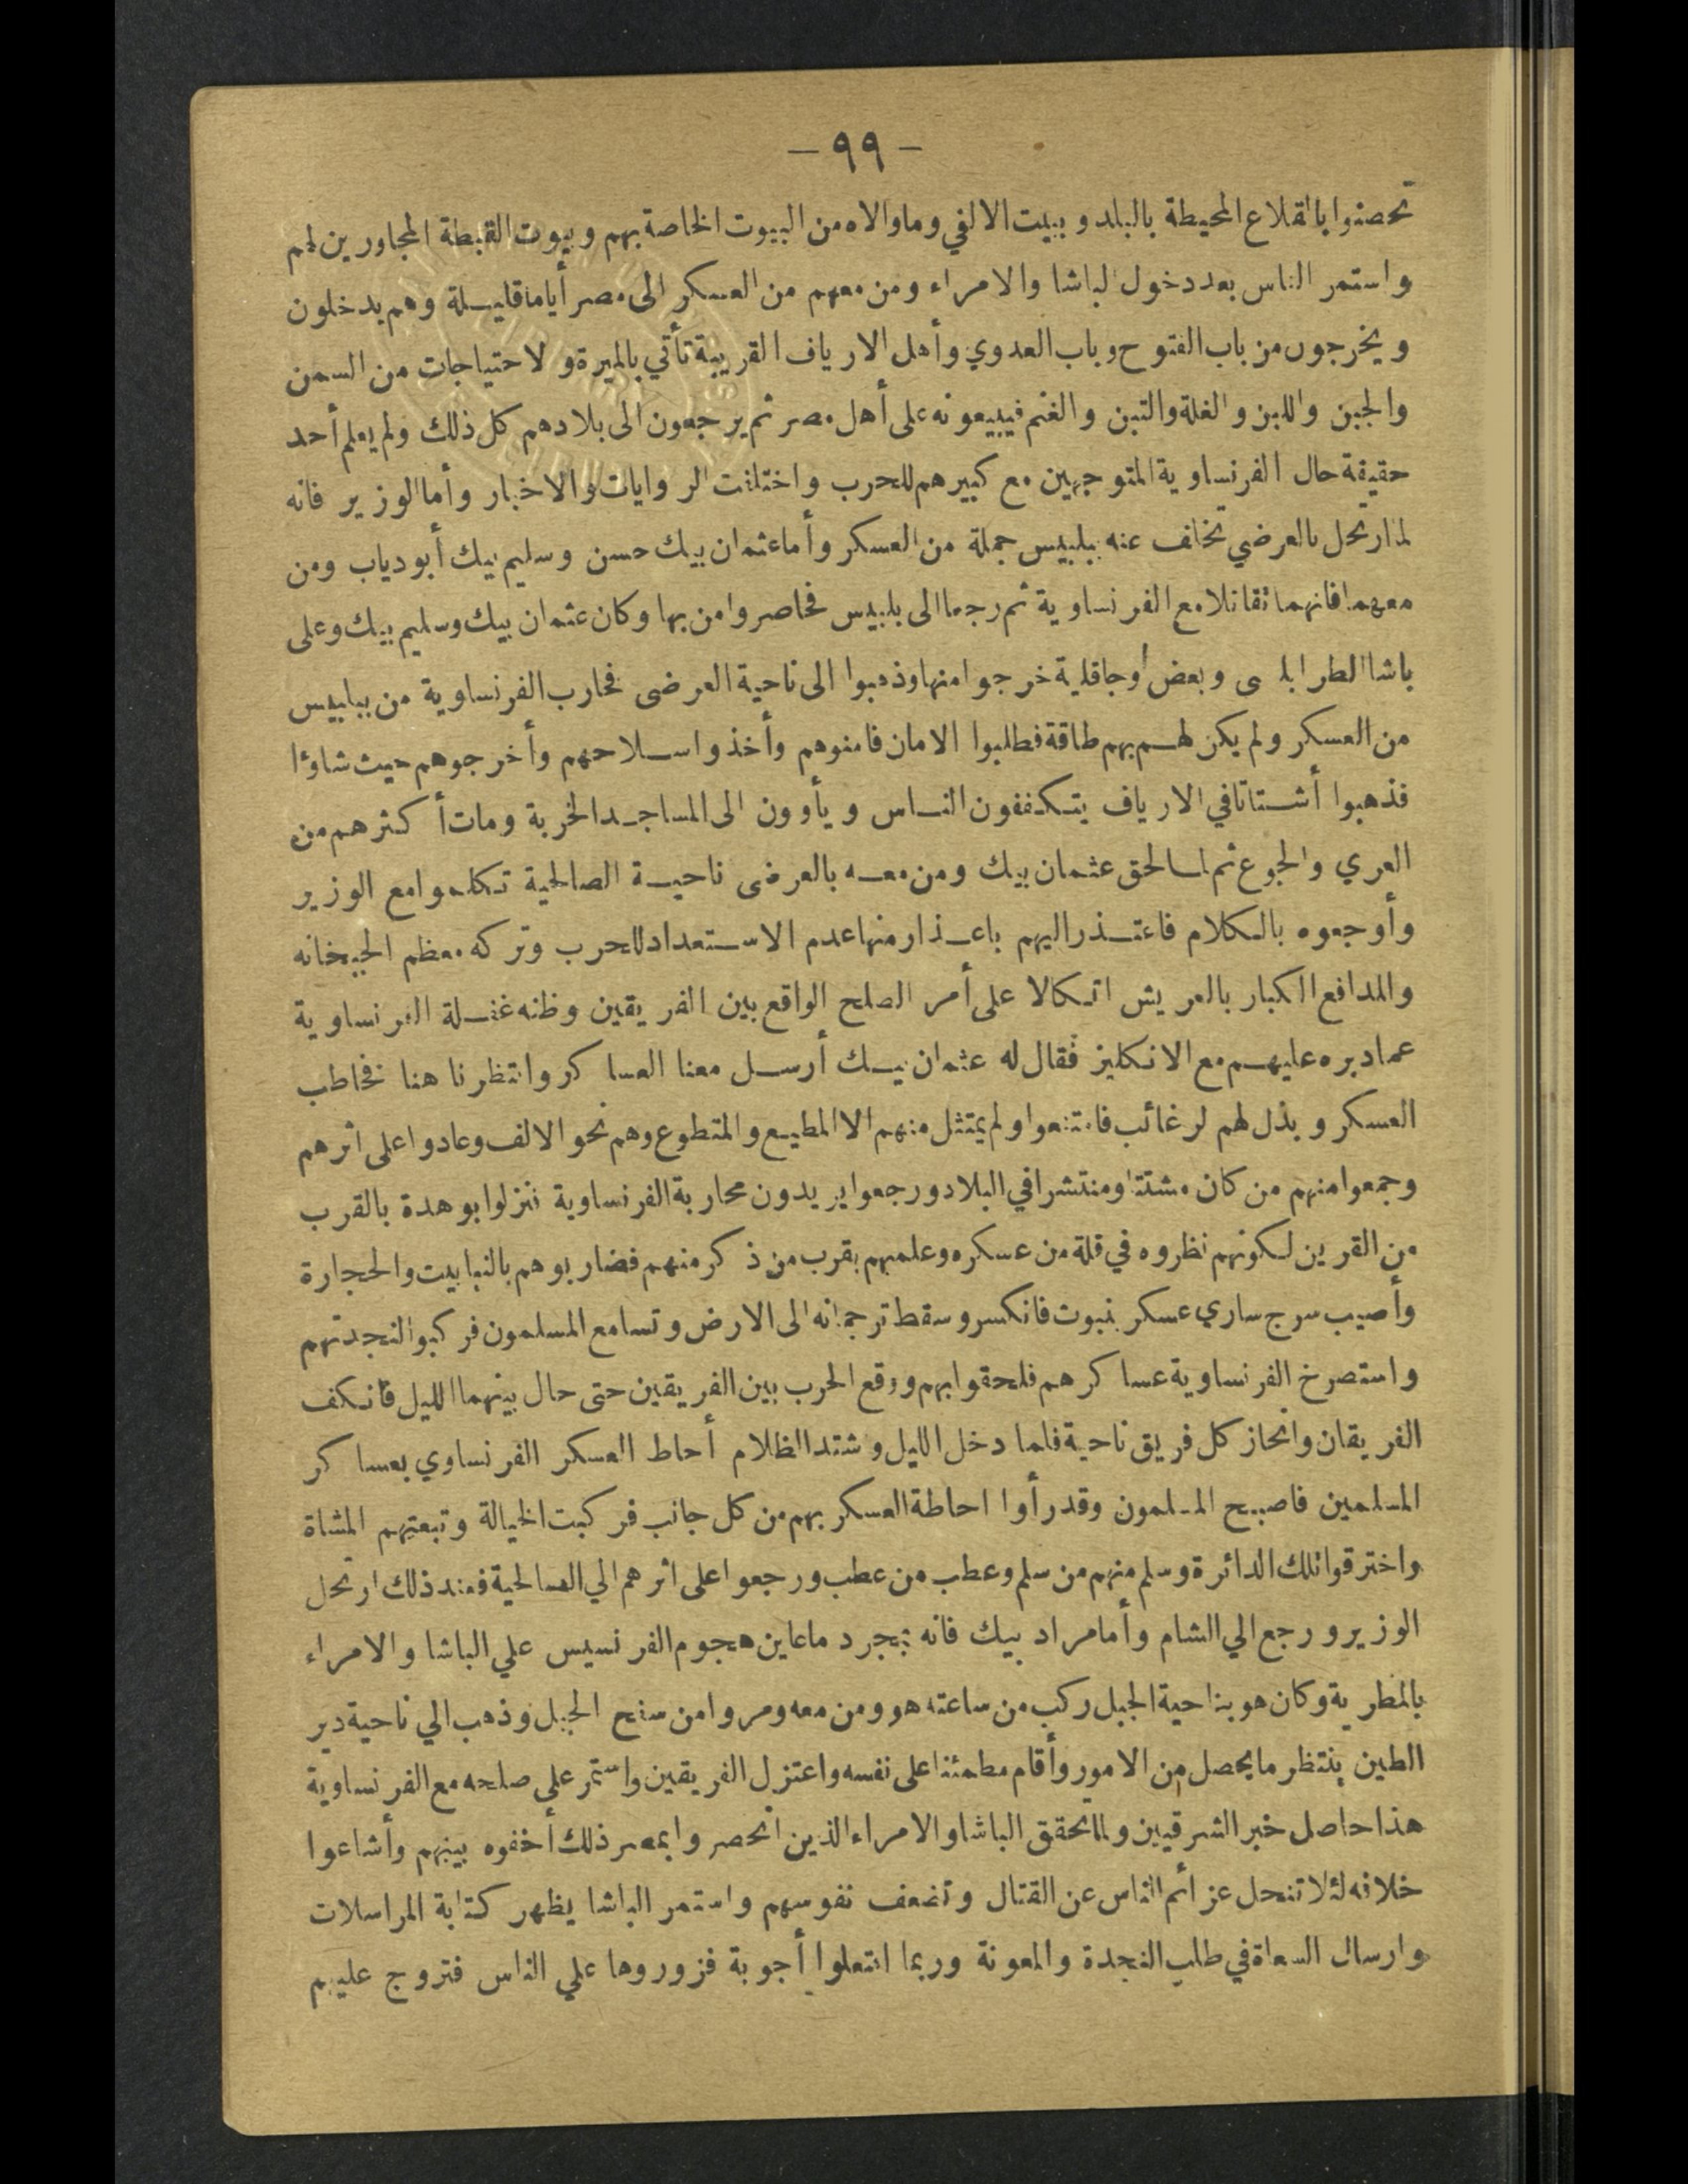 — ٩٩ —
تحصنوا بالقلاع المحيطة بالبلد و ببيت الالفي وما والاه من البيوت الخاصة بهم و بيوت القبطة المجاورين لهم
واستمر الناس بعد دخول الباشا والامراء ومن معهم من العسكر الى مصر أياما قليلة وهم يدخلون
ويخرجون من باب الفتوح وباب العدوي وأهل الارياف القريبة تأتي بالميرة و لاحتياجات من السمن
والجبن واللبن والغلة والتبن والغنم فيبيعونه على أهل مصر ثم يرجعون الى بلادهم كل ذلك ولم يعلم أحد
حقيقة حال الفرنساوية المتوجهين مع كبيرهم للحرب واختلفت الروايات والاخبار وأما الوزير فانه
لما ارتحل بالعرضي تخلف عنه ببلبيس جملة من العسكر وأما عثمان بيك حسن وسليم بيك أبو دياب ومن
معهما فانهما تقاتلا مع الفرنساوية ثم رجعا الى بلبيس فحاصروا من بها وكان عثمان بيك وسليم بيك وعلى
باشا الطرابلسى وبعض أوجاقلية خرجوا منها وذهبوا الى ناحية العرضى فحارب الفرنساوية من ببلبيس
من العسكر ولم يكن لهم بهم طاقة فطلبوا الامان فامنوهم وأخذوا سلاحهم وأخرجوهم حيث شاؤا
فذهبوا أشتاتا في الارياف يتكففون الناس ويأوون الى المساجد الخربة ومات أكثرهم من
العري والجوع ثم لما لحق عثمان بيك ومن معه بالعرضى ناحية الصالحية تكلموا مع الوزير
وأوجعوه بالكلام فاعتذر اليهم باعذار منها عدم الاستعداد للحرب وتركه معظم الجبخانه
والمدافع الكبار بالعريش اتكالا على أمر الصلح الواقع بين الفريقين وظنه غفلة الفرنساوية
عما دبره عليهم مع الانكليز فقال له عثمان بيك أرسل معنا العساكر وانتظرنا هنا فخاطب
العسكر وبذل لهم لرغائب فامتنعوا ولم يمتثل منهم الا المطيع والمتطوع وهم نحو الالف وعادوا على اثرهم
وجمعوا منهم من كان مشتتا ومنتشرا في البلاد ورجعوا يريدون محاربة الفرنساوية فنزلوا بوهدة بالقرب
من القرين لكونهم نظروه في قلة من عسكره وعلمهم بقرب من ذكر منهم فضاربوهم بالنبابيت والحجارة
وأصيب سرج ساري عسكر بنبوت فانكسر وسقط ترجمانه الى الارض وتسامع المسلمون فركبوا لنجدتهم
واستصرخ الفرنساوية عساكرهم فلحقوا بهم ووقع الحرب بين الفريقين حتى حال بينهما الليل فانكف
الفريقان وانحاز كل فريق ناحية فلما دخل الليل و شتد الظلام أحاط العسكر الفرنساوي بعساكر
المسلمين فاصبح المسلمون وقد رأوا احاطة العسكر بهم من كل جانب فركبت الخيالة وتبعتهم المشاة
واخترقوا تلك الدائرة وسلم منهم من سلم وعطب من عطب ورجعوا على اثرهم الي الصالحية فعند ذلك ارتحل
الوزير ورجع الي الشام وأما مراد بيك فانه بمجرد ما عاين هجوم الفرنسيس علي الباشا والامراء
بالمطرية وكان هو بناحية الجبل ركب من ساعته هو ومن معه ومروا من سفح الجبل وذهب الي ناحية دير
الطين ينتظر ما يحصل من الامور وأقام مطمئنا على نفسه واعتزل الفريقين واستمر على صلحه مع الفرنساوية
هذا حاصل خبر الشرقيين ولما تحقق الباشا والامراء الذين انحصروا بمصر ذلك أخفوه بينهم وأشاعوا
خلافه لئلا تنحل عزائم الناس عن القتال وتضعف نفوسهم واستمر الباشا يظهر كتابة المراسلات
وارسال السعاة في طلب النجدة والمعونة وربما افتعلوا أجوبة فزوروها علي الناس فتروج عليهم